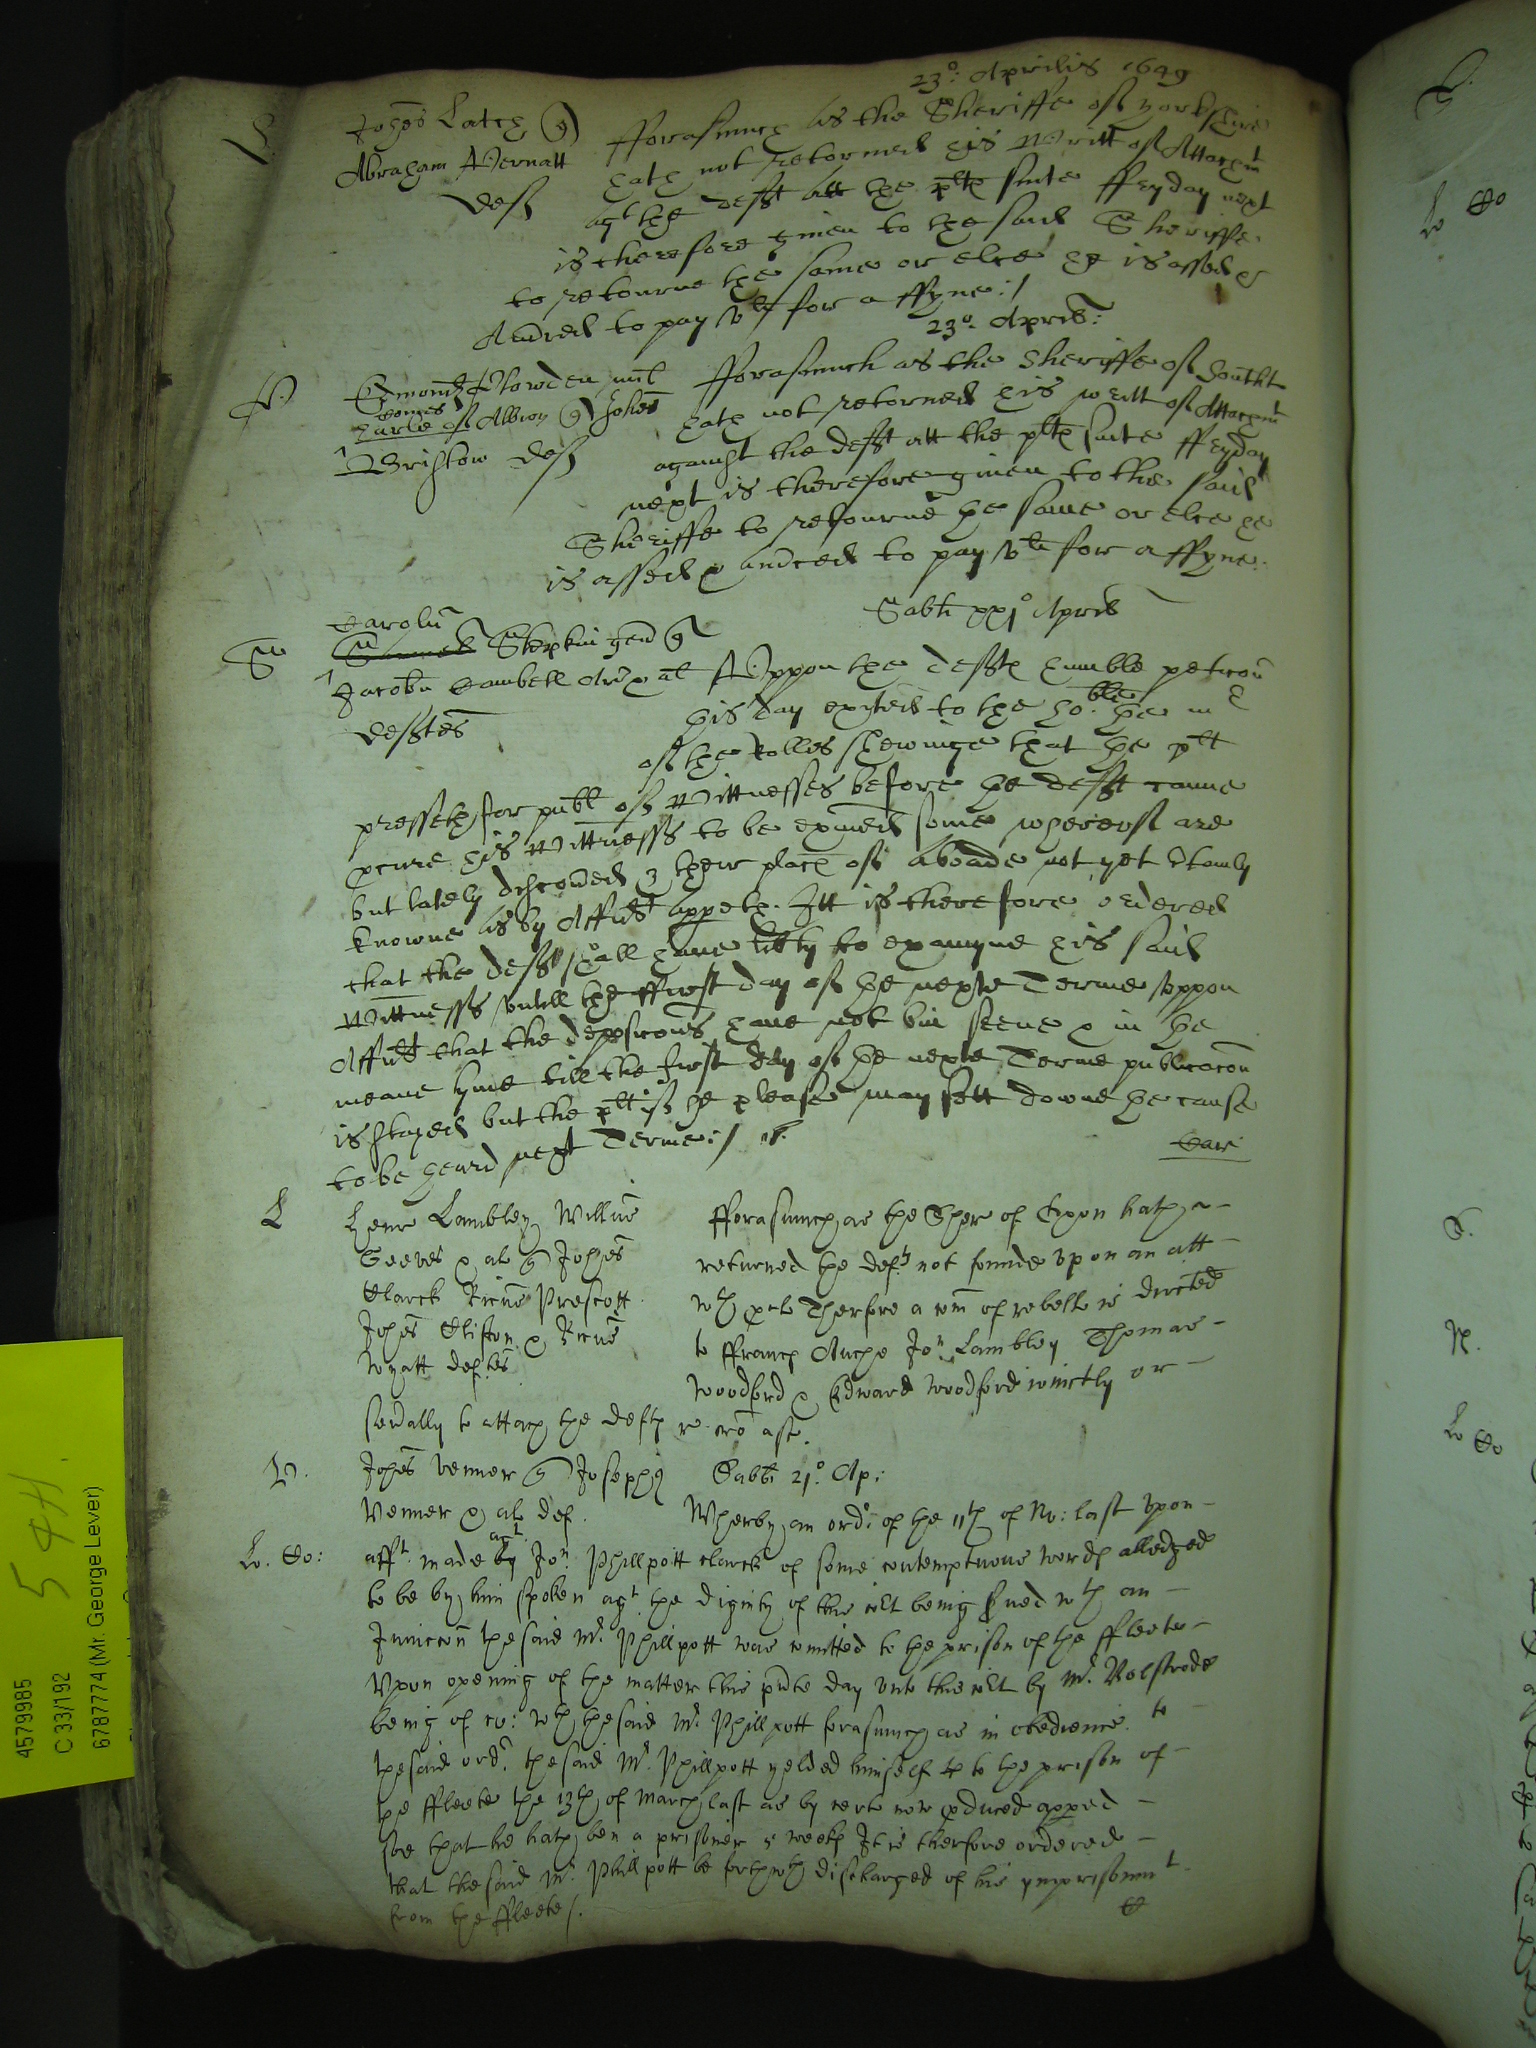 23o: Aprilis 1649
L. Johes Latch q
Abraham Vernatt
def
fforasmuch as the Sheriffe of yorkshire
hath not retorned his Writt of Attachmt
agt the deft att the plts suite ffryday next
is therefore given to the said Sheriffe
to retourne the same or else he is assed &
Amcied to pay vli for a ffyne:/
23o. Aprilis:
P. Edmond Plowden mil
Comes
Earle of Albion q Johes
Bristow def
fforasmuch as the Sheriffe of Southt
hath not retorned his writt of Attachmt
against the deft att the plts suite ffryday
next is therefore given to the said
Sheriffe to retourne the same or else he
is assed & amced to pay vli for a ffyne.
Sabti xxjo Aprilis
Carolus
S Skipkin gen q
Jacobu Cambell Ar & al
deftes
Uppon the defts humble peticon
this day exhited to the ho:ble the mr
of the Rolles shewinge that the plt
presseth for publ of Wittnesses before the deft canne
pcure his Wittnesses to be exmined some whereof are
but lately discovered & their place of aboade not yet ctainly
knowne as by Affidt appeth. Itt is therefore ordered
that the deft shall have libty to examyne his said
Wittnesses untill the ffirst day of the nexte Terme uppon
Affidt that the deposicons have not bin seene & in the
meane tyme till the first day of the nexte Terme publicacon
is stayed but the plt if he please may sett downe the cause
to be heard next Terme:/
L Henr Lambley Willus
Reeves & al q Johes
Clarck Ricus Prescott
Johes Clifton & Ricus
Wyatt deftes
fforasmuch as the Sher of Exon hath
returned the defts not founde upon an att
wth Therfore a com of rebell is directed
to ffrancs Jon Lambley Thomas
Woodford & Edward Woodford ioinctly or
sevally to attach the defts
V. Johes Venner q Josephus
Venner & al def.
Sabti 21o. Ap:
Wherby an ordr of the 11th of No: last upon
Lo. Co: afft made agt by Jon Phillpott clarck of some contemptuous words alledged
to be by him spoken agt the dignity of this cort being served wth an
Iniuccon the said Mr. Phillpott was comitted to the prison of the ffleete
Upon opening of the matter this pnte day unto this cort by Mr.
being of co: wth the said Mr. Phillpott forasmuch as in obedience to
the said ordr. the said Mr. Phillpott yelded himself to the prison of
the ffleete the 13th of March last as by certe now pduced appred
soe that he hath ben a prisoner 5 weeks It is therfore ordered
that the said Mr. Phillpott be forthwth discharged of his ymprisonmt
from the ffleete/.
54H.
4579985
C 33/192
6787774 (Mr. George Lever)